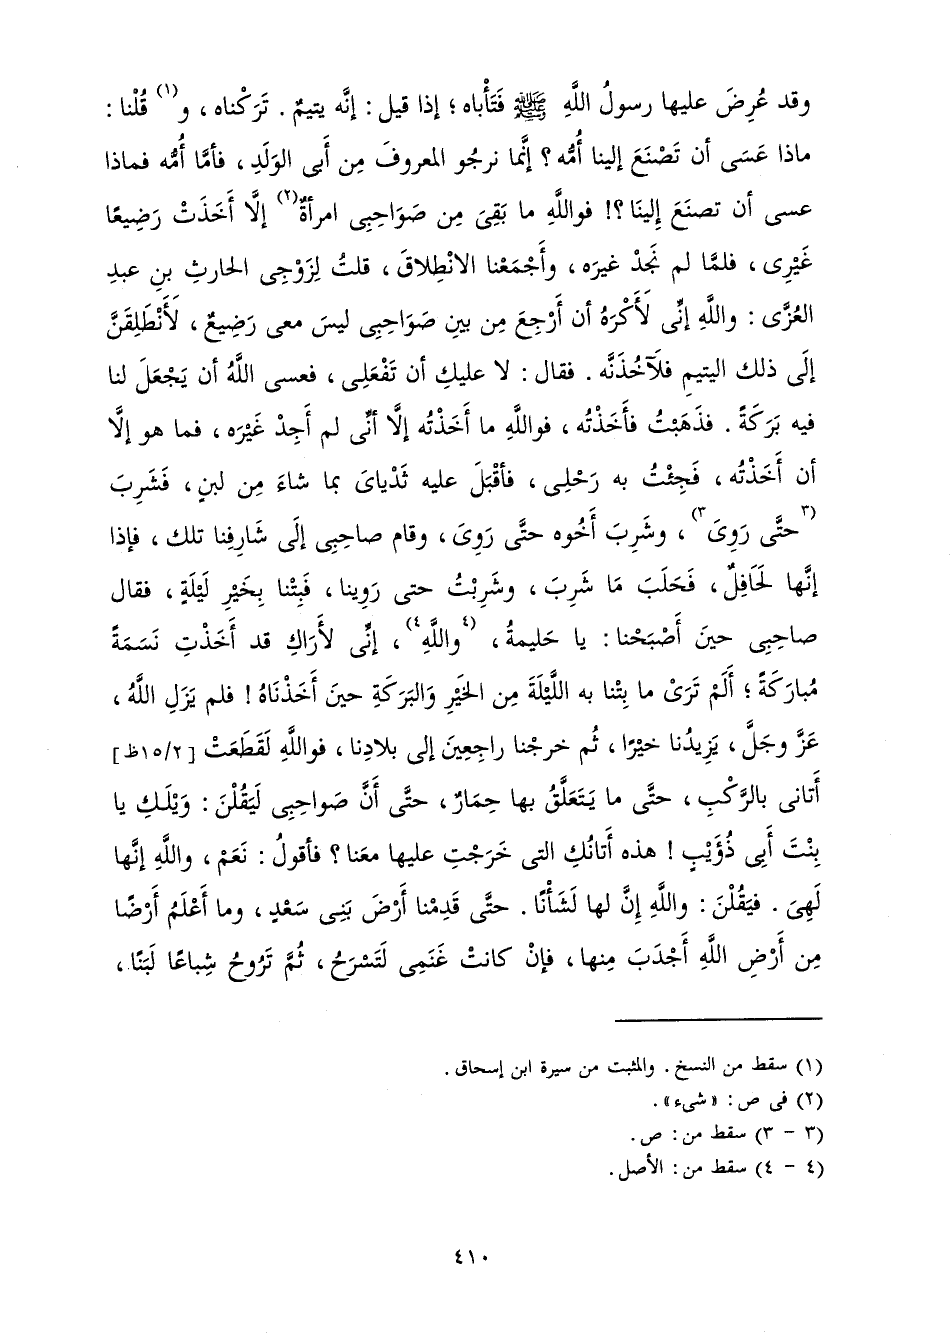 وقد عُرِضَ عليها رسولُ اللَّهِ ﷺ فَتَأْباه ؛ إذا قيل : إنَّه يتيمٌ . تَرَكْناه ، و(١) قُلْنا :
ماذا عَسَى أن تَصْنَعَ إلينا أُمُّه ؟ إنَّما نرجو المعروفَ مِن أَبى الوَلَدِ ، فأمَّا أُمُّه فماذا
عسى أن تصنعَ إلينَا ؟! فواللَّهِ ما بَقِىَ مِن صَوَاحِبِى امرأةٌ(٢) إلَّا أَخَذَتْ رَضِيعًا
غَيْرِى ، فلمَّا لم نَجِدْ غيرَه ، وأَجْمَعْنا الانْطِلاقَ ، قلتُ لِزَوْجِى الحارثِ بنِ عبدِ
العُزَّى : واللَّهِ إنِّى لَأَكْرَهُ أن أَرْجِعَ مِن بينِ صَوَاحِبِى ليسَ معى رَضِيعٌ ، لَأَنْطَلِقَنَّ
إلَى ذلك اليتيمِ فلَآخُذَنَّه . فقال : لا عليكِ أن تَفْعَلِى ، فعسى اللَّهُ أن يَجْعَلَ لنا
فيه بَرَكَةً . فذَهَبْتُ فأَخَذْتُه ، فواللَّهِ ما أَخَذْتُه إلَّا أنِّى لم أَجِدْ غَيْرَه ، فما هو إلَّا
أن أَخَذْتُه ، فَجِئْتُ به رَحْلِى ، فأقْبَلَ عليه ثَدْياىَ بما شاءَ مِن لبنٍ ، فَشَرِبَ
(٣حتَّى رَوِىَ٣) ، وشَرِبَ أَخُوه حتَّى رَوِىَ ، وقام صاحِبِى إلَى شَارِفِنا تلك ، فإذا
إنَّها لَحَافِلٌ ، فَحَلَبَ مَا شَرِبَ ، وشَرِبْتُ حتى رَوِينا ، فَبِتْنا بِخَيْرِ لَيْلَةٍ ، فقال
صاحِبِى حينَ أَصْبَحْنا : يا حليمةُ ، (٤واللَّهِ٤) ، إنِّى لأَرَاكِ قد أَخَذْتِ نَسَمَةً
مُبارَكَةً ؛ أَلَمْ تَرَىْ ما بِتْنا به اللَّيْلَةَ مِن الخَيْرِ وَالبَرَكَةِ حينَ أَخَذْنَاهُ ! فلم يَزَلِ اللَّهُ ،
عَزَّ وجَلَّ ، يَزِيدُنا خيْرًا ، ثُم خرجْنا راجِعِينَ إلى بلادِنا ، فواللَّهِ لَقَطَعَتْ [١٥/٢ظ]
أَتانى بالرَّكْبِ ، حتَّى ما يَتَعَلَّقُ بها حِمَارٌ ، حتَّى أَنَّ صَواحِبِى لَيَقُلْنَ : وَيْلَكِ يا
بِنْتَ أَبِى ذُؤَيْبٍ ! هذه أَتانُكِ التى خَرَجْتِ عليها معَنا ؟ فأقولُ : نَعَمْ ، واللَّهِ إنَّها
لَهِىَ . فيَقُلْنَ : واللَّهِ إنَّ لها لَشَأْنًا . حتَّى قَدِمْنا أَرْضَ بَنِى سَعْدٍ ، وما أَعْلَمُ أَرْضًا
مِن أَرْضِ اللَّهِ أَجْدَبَ مِنها ، فإنْ كانتْ غَنَمِى لَتَسْرَحُ ، ثُمَّ تَرُوحُ شِباعًا لَبَنًا ،
(١) سقط من النسخ . والمثبت من سيرة ابن إسحاق .
(٢) فى ص : «شىء» .
(٣ - ٣) سقط من : ص .
(٤ - ٤) سقط من : الأصل .
٤١٠